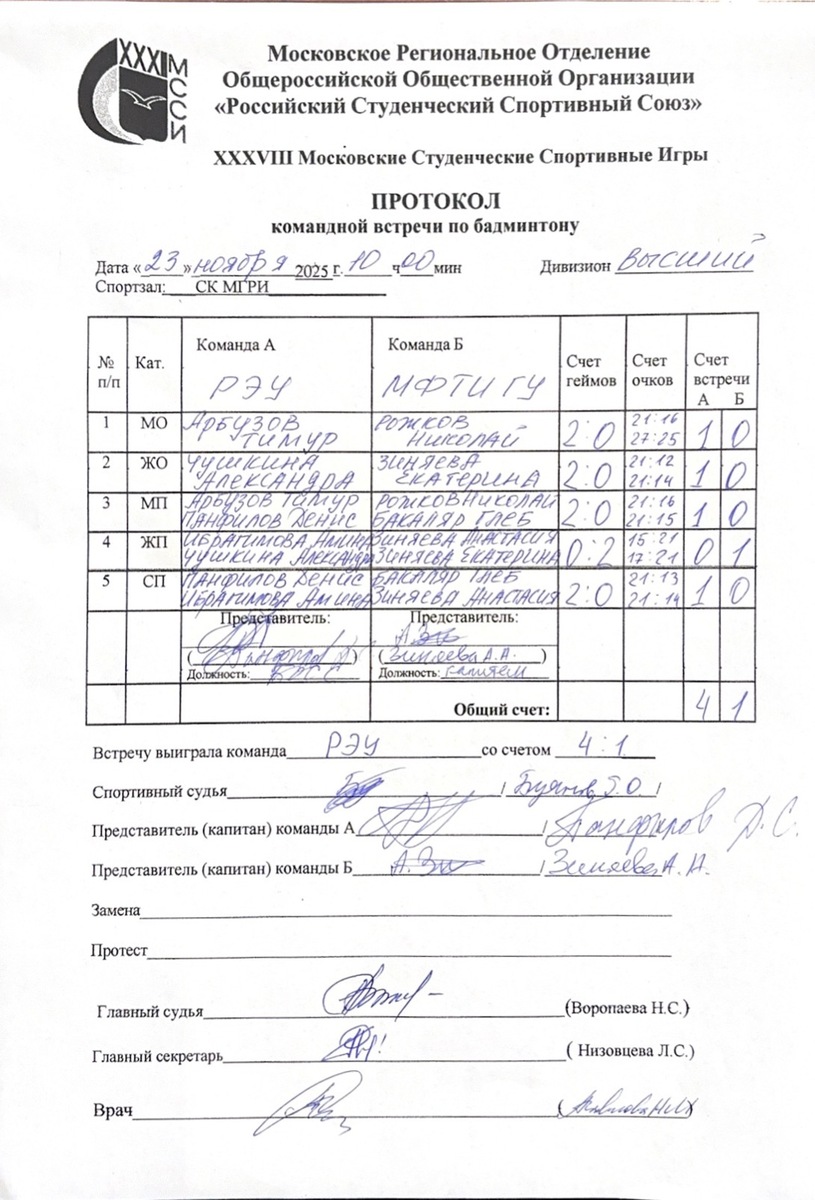 XXXIII
МССИ
Московское Региональное Отделение
Общероссийской Общественной Организации
«Российский Студенческий Спортивный Союз»
XXXVIII Московские Студенческие Спортивные Игры
ПРОТОКОЛ
командной встречи по бадминтону
Дата «23» ноября 2025 г. 10 ч 00 мин Дивизион Высший
Спортзал: СК МГРИ
№ п/п Кат. Команда А РЭУ Команда Б МФТИ ГУ Счет геймов Счет очков Счет встречи А Б
1 МО Арбузов Тимур Рожков Николай 2:0 21:16 27:25 1 0
2 ЖО Чушкина Александра Зиняева Екатерина 2:0 21:12 21:14 1 0
3 МП Арбузов Тимур Панфилов Денис Рожков Николай Бакаляр Глеб 2:0 21:16 21:15 1 0
4 ЖП Ибрагимова Амина Чушкина Александра Зиняева Анастасия Зиняева Екатерина 0:2 15:21 17:21 0 1
5 СП Панфилов Денис Ибрагимова Амина Бакаляр Глеб Зиняева Анастасия 2:0 21:13 21:14 1 0
Представитель: Представитель:
(Панфилов Д) (Зиняева А.А.)
Должность: Должность: капитан
Общий счет: 4 1
Встречу выиграла команда РЭУ со счетом 4:1
Спортивный судья / Буянов Б.О. /
Представитель (капитан) команды А / Панфилов Д.С.
Представитель (капитан) команды Б / Зиняева А.А.
Замена
Протест
Главный судья (Воропаева Н.С.)
Главный секретарь ( Низовцева Л.С.)
Врач